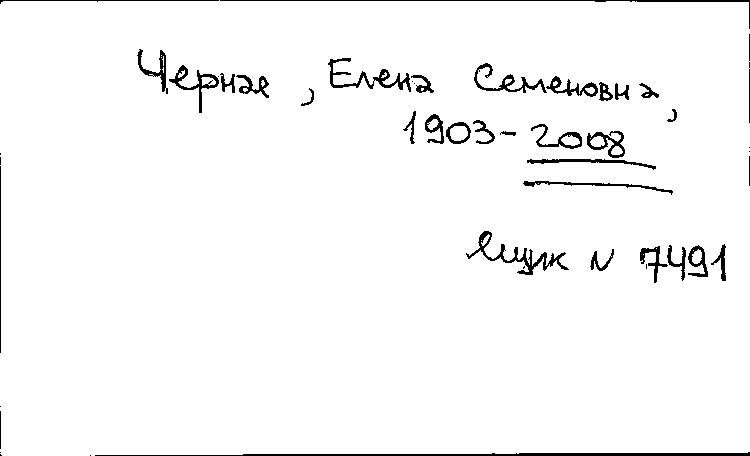 Черная, Елена Семеновна,
1903-2008
Ящик N 7491